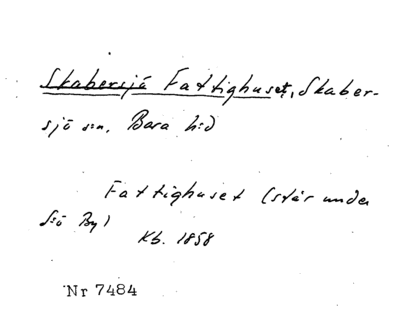 Skabersjö Fattighuset, Skaber-
sjö sn, Bara hd
Fattighuset (står under
S:ö By)
Kb. 1858
Nr 7484